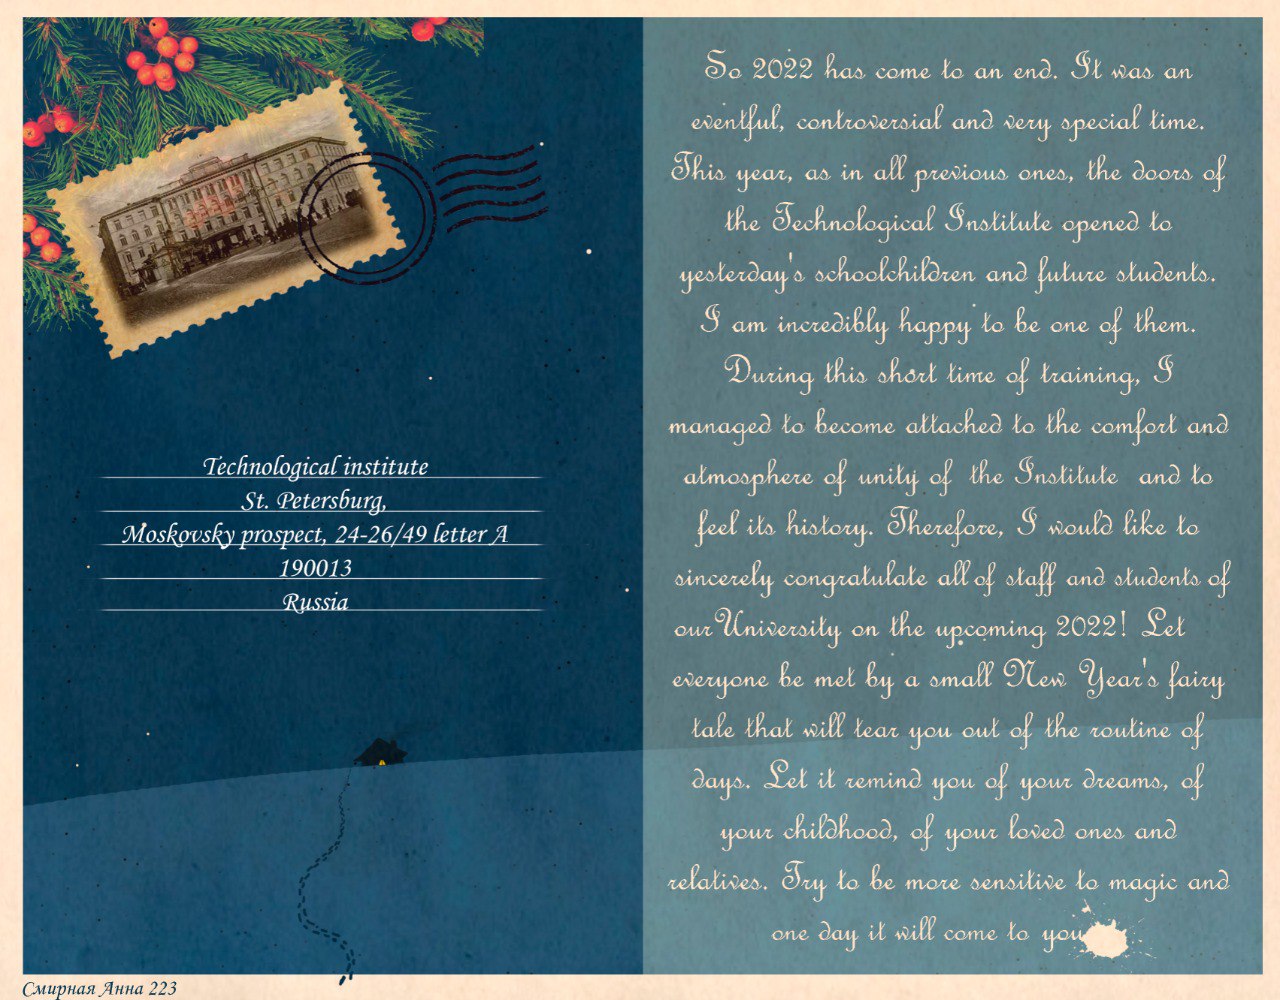 Technological institute
St. Petersburg,
Moskovsky prospect, 24-26/49 letter A
190013
Russia
So 2022 has come to an end. It was an
eventful, controversial and very special time.
This year, as in all previous ones, the doors of
the Technological Institute opened to
yesterday's schoolchildren and future students.
I am incredibly happy to be one of them.
During this short time of training, I
managed to become attached to the comfort and
atmosphere of unity of the Institute and to
feel its history. Therefore, I would like to
sincerely congratulate all of staff and students of
our University on the upcoming 2022! Let
everyone be met by a small New Year's fairy
tale that will tear you out of the routine of
days. Let it remind you of your dreams, of
your childhood, of your loved ones and
relatives. Try to be more sensitive to magic and
one day it will come to you
Смирная Анна 223